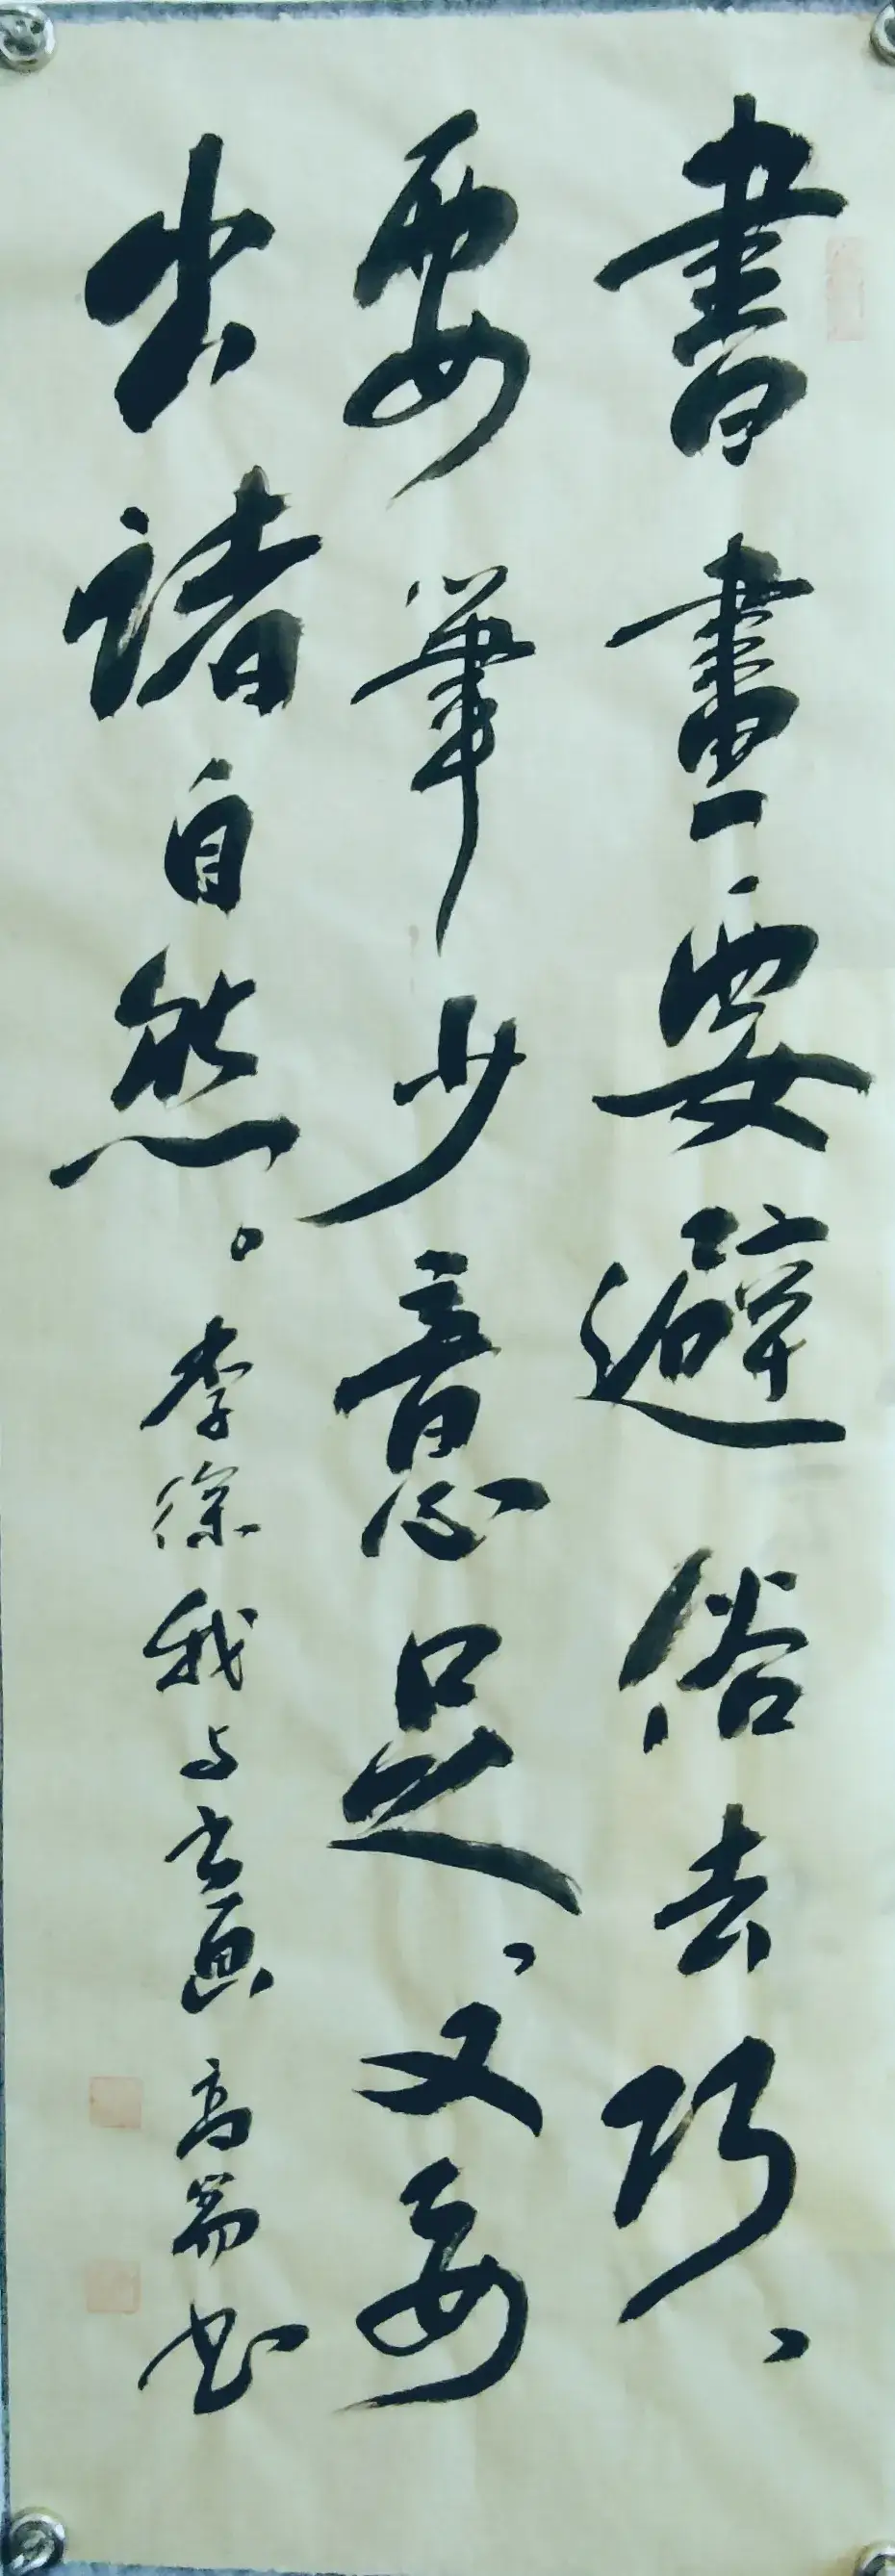 書畫要避俗去巧、
要筆少意足、又要
出諸自然。李徐我与书画 高岩书